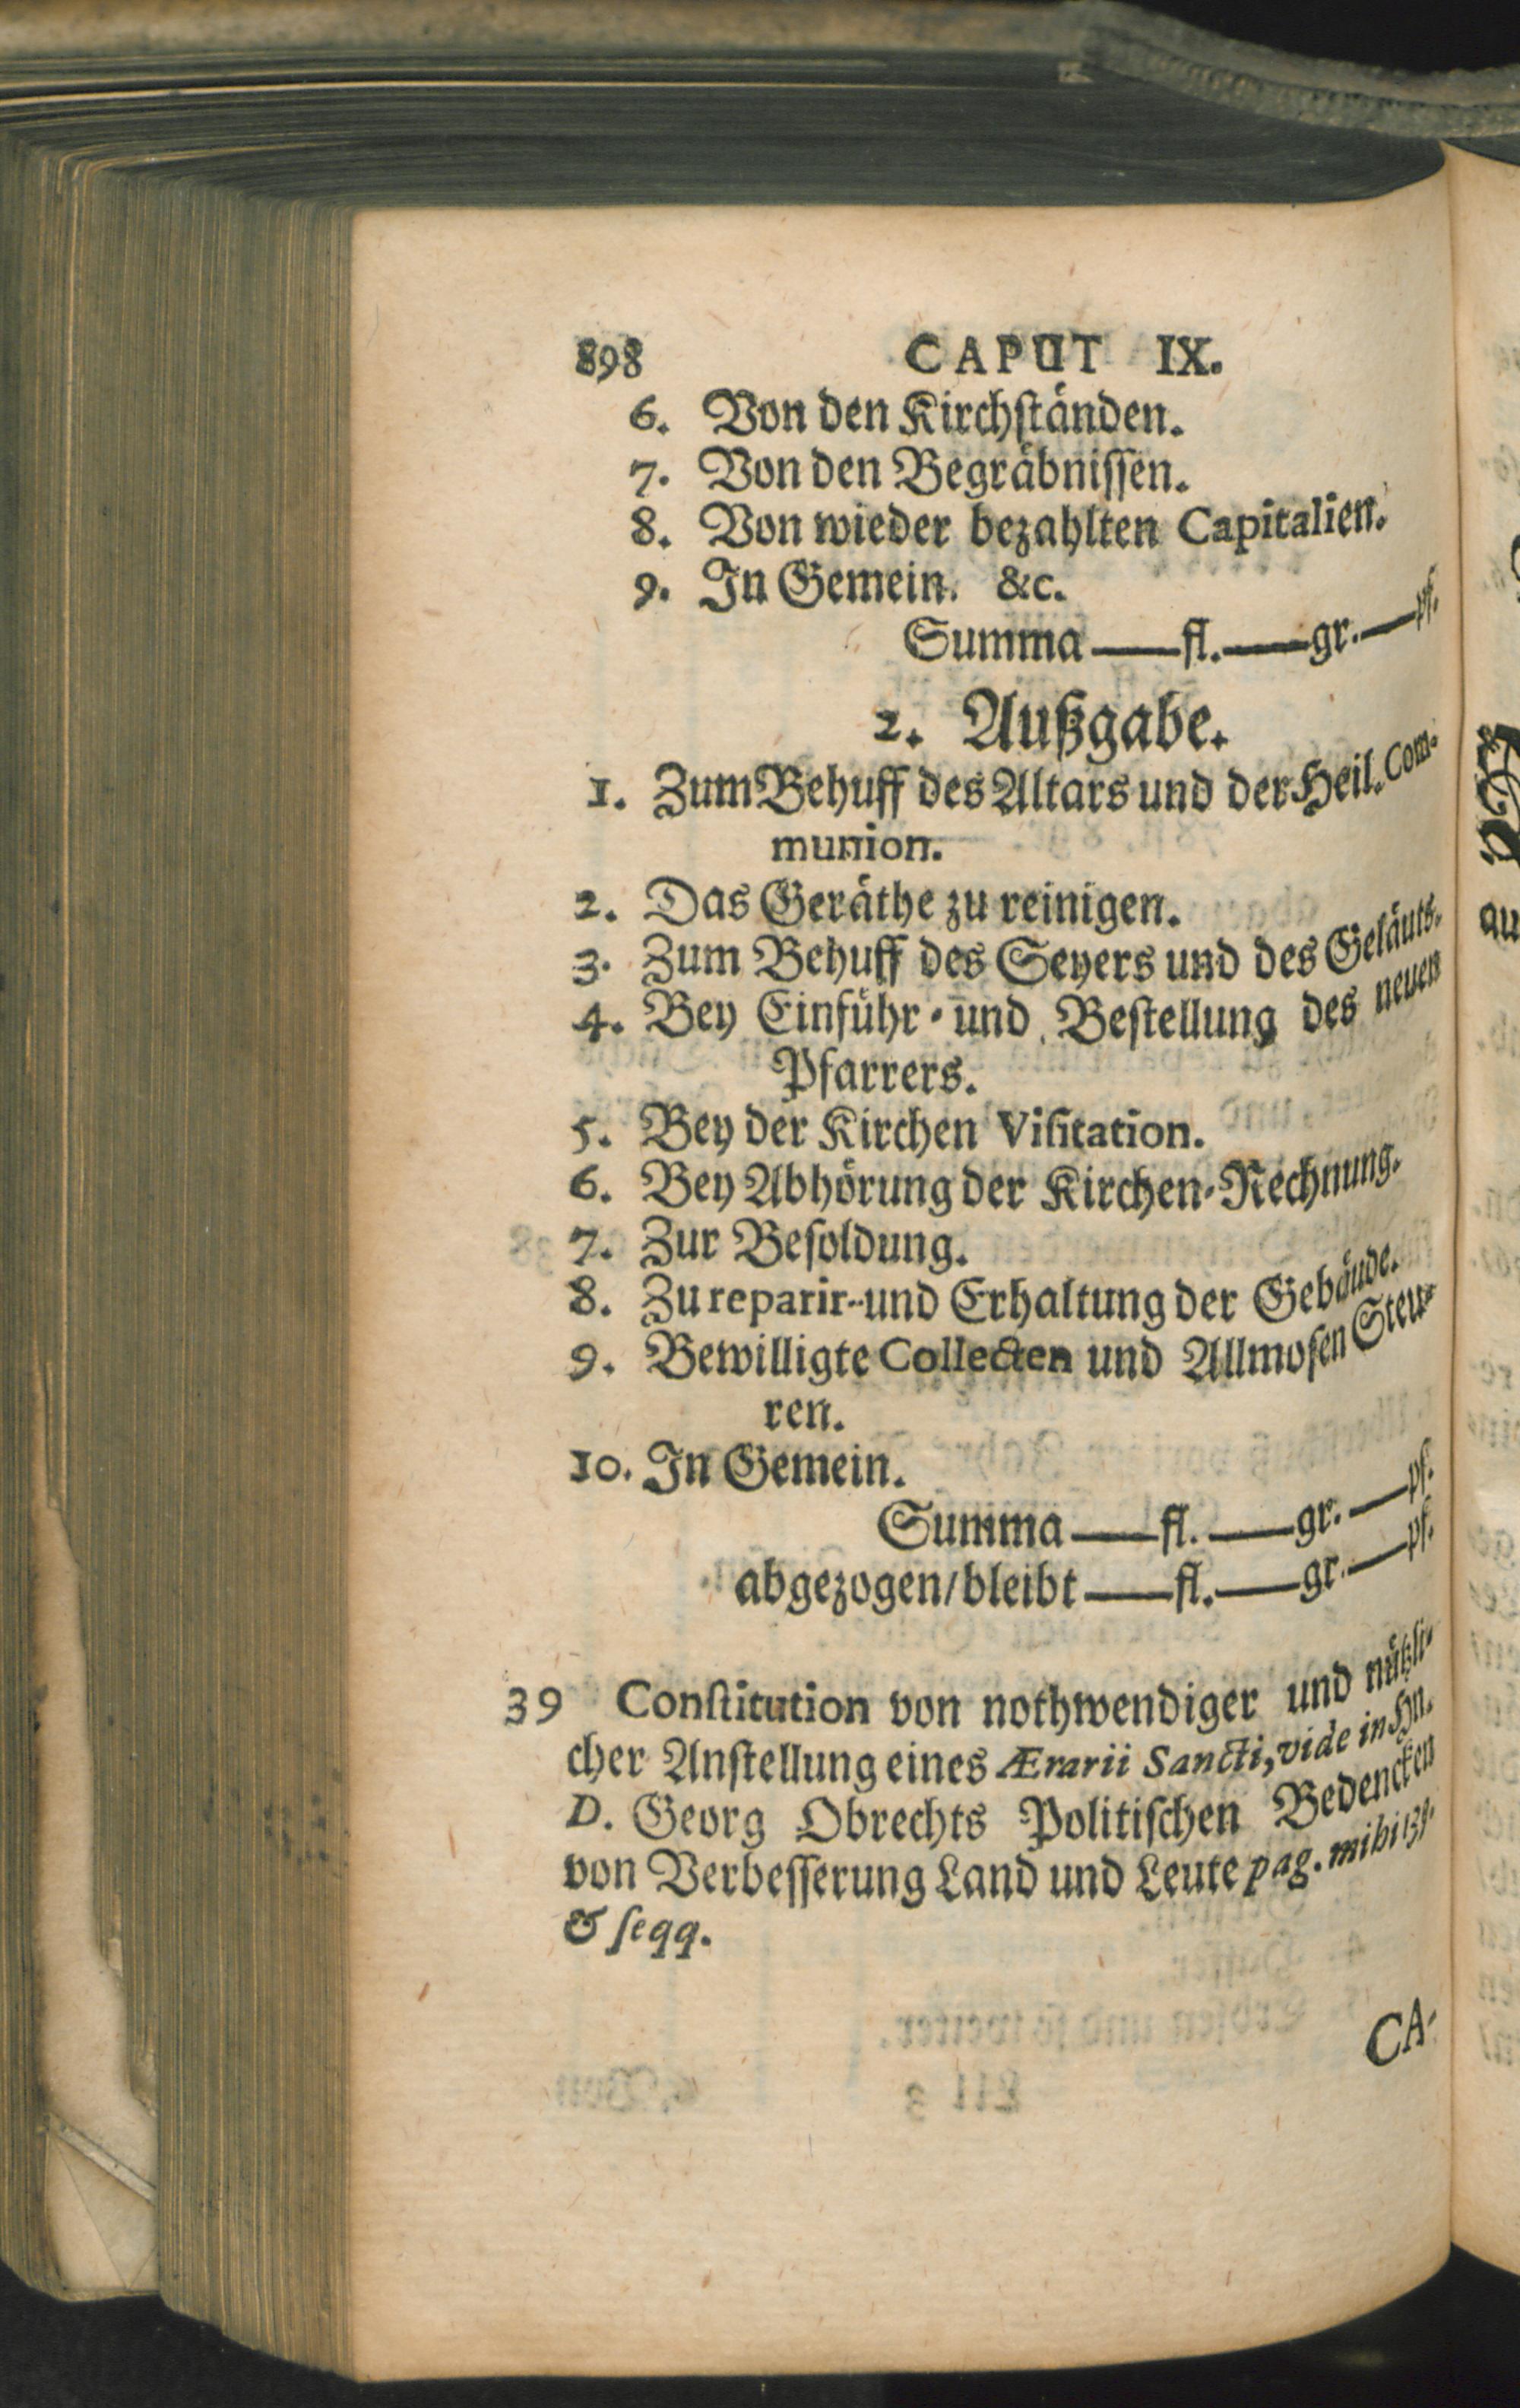 898 CAPUT IX.
6. Von den Kirchständen.
7. Von den Begräbnissen.
8. Von wieder bezahlten Capitalien.
9. In Gemein. &c.
Summa——fl.——gr.——pf.
2. Außgabe.
1. Zum Behuff des Altars und der Heil. Com-
munion.
2. Das Geräthe zu reinigen.
3. Zum Behuff des Seyers und des Geläuts.
4. Bey Einführ- und Bestellung des neuen
Pfarrers.
5. Bey der Kirchen Visitation.
6. Bey Abhörung der Kirchen-Rechnung.
7. Zur Besoldung.
8. Zu reparir- und Erhaltung der Gebäude.
9. Bewilligte Collecten und Allmosen Steu-
ren.
10. In Gemein.
Summa——fl.——gr.——pf.
abgezogen/bleibt——fl.——gr.——pf.
39 Constitution von nothwendiger und nützli-
cher Anstellung eines Ærarii Sancti, vide in Hn.
D. Georg Obrechts Politischen Bedencken
von Verbesserung Land und Leute pag. mihi 139.
& seqq.
CA-